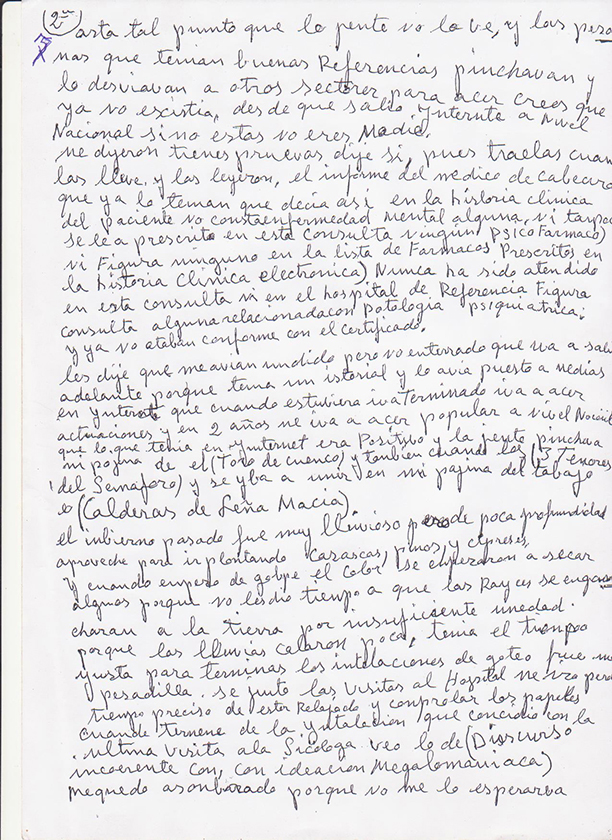 2ª
asta tal punto que la jente no la ve, y las perso
nas que tenian buenas Referencias pinchavan y
lo desviavan a otros sectores para acer creer que
ya no excistia, des de que salio ynternte a Nivel
Nacional si no estas no eres Nadie.
me dyeron tienes pruevas, dije si, pues traelas cuan
las lleve, y las leyeron, el informe del medico de cabecera
que ya lo tenian que decia asi en la historia clinica
del paciente no consta enfermedad mental alguna, ni tanpoco
se le a prescrito en esta Consulta ningun psicoFarmaco)
ni Figura ninguno en la lista de Farmacos Prescritos en
la historia Clinica electronica) Nunca ha sido atendido
en esta consulta ni en el hospital de Referencia Figura
consulta alguna relacionada con patologia psiquiatrica;
y ya no estaban conforme con el certificado.
les dije que me avian undido pero no enterrado que iva a salir
adelante porque tenia un istorial y lo avia puesto a medias
en ynternet que cuando estubiera ivaTerminado iva a acer
actuaciones y en 2 años me iva a acer popular a nivel Nacional
que lo que tenia en ynternet era Positybo y la jente pinchava
mi pagina de el (Toro de cuenco) y tanbien cuando los (3 Tenores
del Semaforo) y se yba a unir en mi pagina del tabajo
(Calderas de Leña Macia).
el inbierno pasado fue muy lluvioso pero de poca profundidad
aproveche para ir plantando carascas, pinos, y cipreses,
y cuando enpezo de golpe el calor se enpezaron a secar
algunos porque no les dio tiempo a que las Rayces se engan
charan a la tierra por insuficiente umedad.
porque las lluvias calaron poca, tenia el tienpo
yusto para terminas los intalaciones de goteo fue
pesadilla. se junto las Visitas al Hospital
tienpo preciso de ester Relajado y conprobar los papeles
cuando termene de la yntalacion que concidio con la
ultima visita a la Sicologa veo lo de (Discurso
incoerente con, con ideacion Megalomaniaca)
me quedo asonbrado porque no me lo esperarba